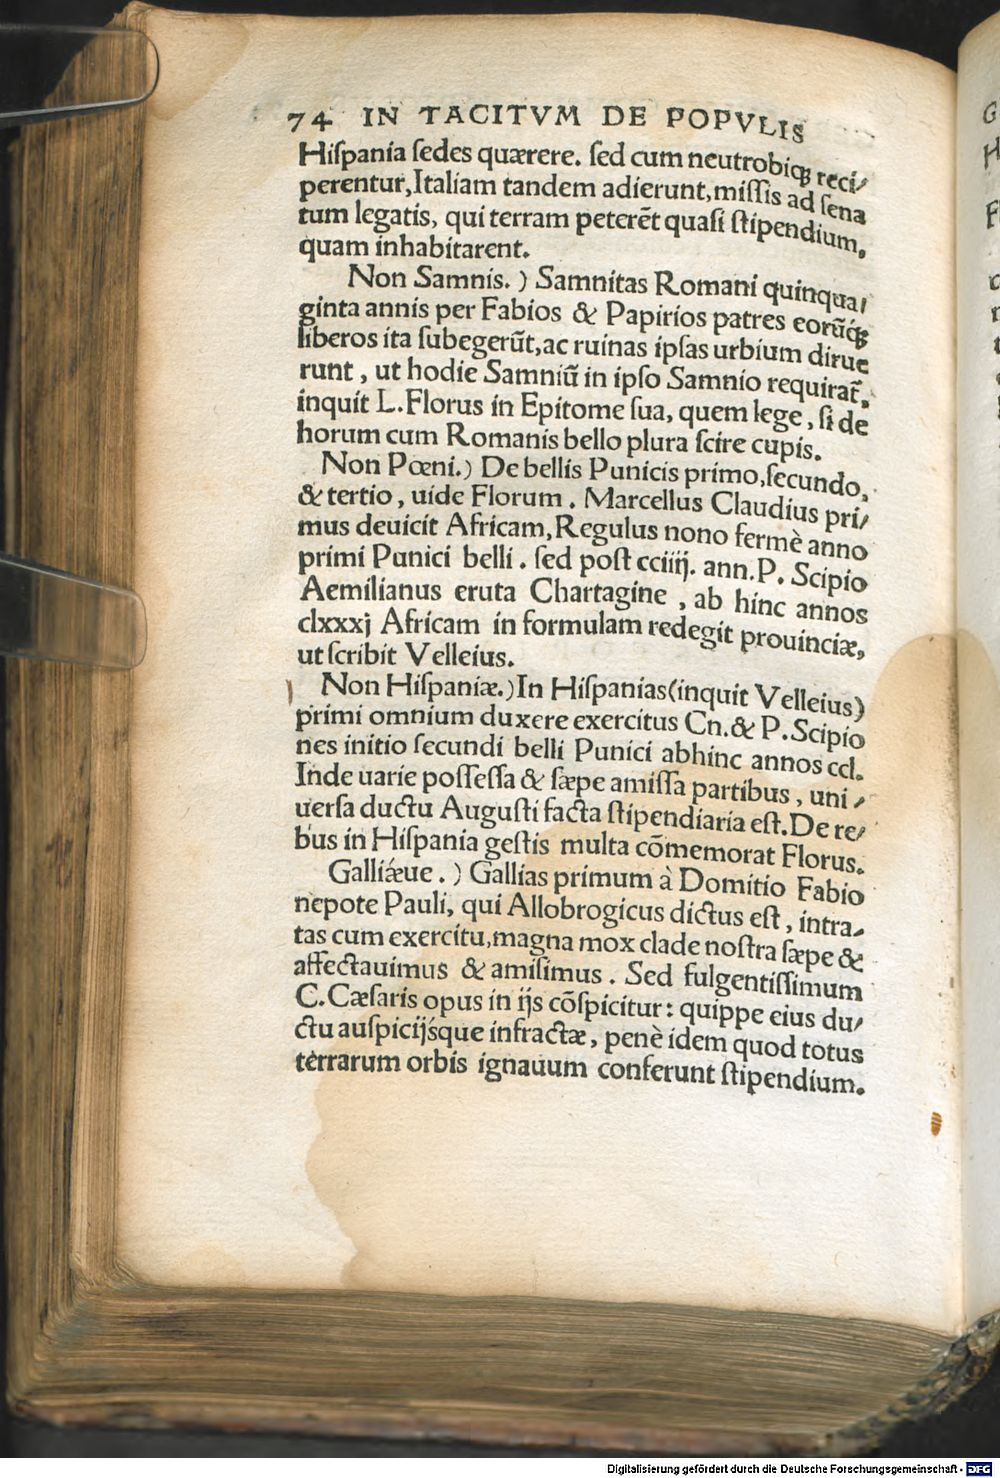 74 IN TACITVM DE POPVLIS
Hiſpania ſedes quærere. ſed cum neutrobiqꝫ reci/
perentur, Italiam tandem adierunt, miſſis ad ſena
tum legatis, qui terram peterẽt quaſi ſtipendium,
quam inhabitarent.
Non Samnis. ) Samnitas Romani quinqua/
ginta annis per Fabios & Papirios patres eorũq́ꝫ
liberos ita ſubegerũt, ac ruinas ipſas urbium dirue
runt, ut hodie Samniũ in ipſo Samnio requirat̃,
inquit L. Florus in Epitome ſua, quem lege, ſi de
horum cum Romanis bello plura ſcire cupis.
Non Pœni.) De bellis Punicis primo, ſecundo,
& tertio, uide Florum. Marcellus Claudius pri/
mus deuicit Africam, Regulus nono fermè anno
primi Punici belli. ſed poſt cciiij. ann. P. Scipio
Aemilianus eruta Chartagine, ab hinc annos
clxxxj Africam in formulam redegit prouinciæ,
ut ſcribit Velleius.
Non Hiſpaniæ.) In Hiſpanias (inquit Velleius)
primi omnium duxere exercitus Cn. & P. Scipio
nes initio ſecundi belli Punici abhinc annos ccl.
Inde uarie poſſeſſa & ſæpe amiſſa partibus, uni/
uerſa ductu Auguſti facta ſtipendiaria eſt. De re/
bus in Hiſpania geſtis multa cõmemorat Florus.
Galliǽue. ) Gallias primum à Domitio Fabio
nepote Pauli, qui Allobrogicus dictus eſt, intra/
tas cum exercitu, magna mox clade noſtra ſæpe &
affectauimus & amiſimus. Sed fulgentiſſimum
C. Cæſaris opus in ijs cõſpicitur: quippe eius du/
ctu auſpicijśque infractæ, penè idem quod totus
terrarum orbis ignauum conferunt ſtipendium.
Digitalisierung gefördert durch die Deutsche Forschungsgemeinschaft - DFG